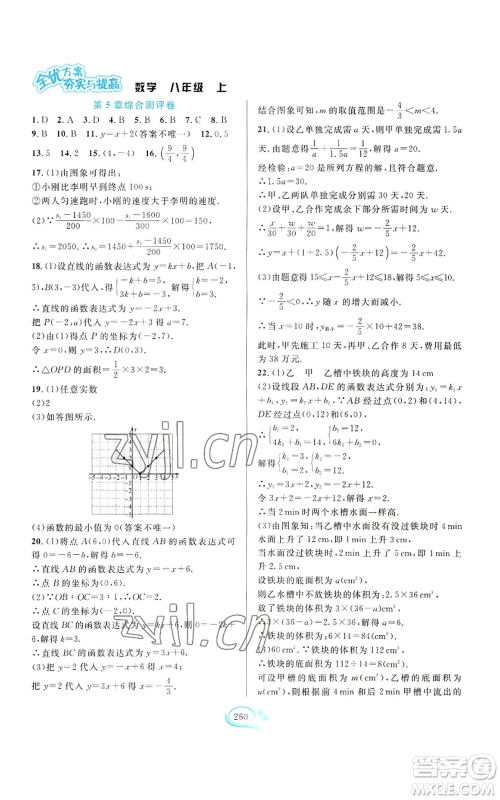 全优方案
夯实与提高
数学 八年级 上
第5章综合测评卷
1. D 2. A 3. D 4. D 5. D 6. D 7. D 8. D
9. B 10. B 11. y=x+2(答案不唯一) 12. 0.5
13. 5 14. 2 15. (4,-4) 16. (9/4, 9/4)
17. (1)由图象可得出；
①小刚比李明早到终点 100 s；
②两人匀速跑时，小刚的速度大于李明的速度.
(2)∵(s₁-1450)/200=(s₁-1600)/100+(-300)/150,
∴s₁=2050. ∴(s₁-1450)/200×100=150
18. (1)设直线的函数表达式为 y=kx+b, 把 A(-1,
5),B(3,-3)代入,得{-k+b=5, 3k+b=-3, 解得{k=-2, b=3.
∴直线的函数表达式为 y=-2x+3.
把 P(-2,a)代入 y=-2x+3 得 a=7
(2)由(1)得点 P 的坐标为(-2,7).
令 x=0,则 y=3,∴D(0,3).
∴△OPD 的面积=1/2×3×2=3.
19. (1)任意实数
(2)2
(3)如答图所示.
(4)函数的最小值为 0(答案不唯一)
20. (1)将点 A(6,0)代入直线 AB 的表达式可得
0=-6-b,解得 b=-6.
∴直线 AB 的函数表达式为 y=-x+6.
∴点 B 的坐标为(0,6).
(2)∵OB：OC=3：1,∴OC=2.
∴点 C 的坐标为(-2,0).
设直线 BC 的函数表达式为 y=kx+6,则 0=-2k+
6,解得 k=3.
∴直线 BC 的函数表达式为 y=3x+6.
(3)把 y=6 代入 y=-x+6,得 x=0,即 m=0.
把 y=2 代入 y=3x+6 得 x=-4/3,即 m=-4/3.
结合图象可得 m 的取值范围是-4/3<m<4.
21. (1)设乙单独完成需 a 天,则甲单独完成需 1.5a
天.由题意得 1/a+1/1.5a=1/12,解得 a=20.
经检验：a=20 是所列方程的解,且符合题意.
∴1.5a=30.
∴甲、乙两队单独完成分别需 30 天、20 天.
(2)甲、乙合作完成余下部分所需时间为 w 天,则
x/30+w/30+w/20=1. ∴w=-2/5x+12.
∴y=x+(1+2.5)(-2/5x+12)=-2/5x+42.
(3)由题意得 15≤x-2/5x+12≤24,解得 5≤x≤20.
∵-2/5<0,∴y 随 x 的增大而减小.
此时,甲先施工 10 天,甲、乙再合作 8 天,费用最
低为 38 万元.
22. (1)乙 甲 乙槽中铁块的高度为 14 cm
(2)设线段 AB,DE 的函数表达式分别为 y₁=k₁x
∴y₁=3x+2,y₂=-2x+12.
令 3x+2=-2x+12,解得 x=2.
∴当注水 2 min 时,两个水槽中水面一样高.
(3)由图象知：当水槽中没有没过铁块时 4 min 水
面上升了 12 cm,即 1 min 上升 3 cm,
当水面没过铁块时,2 min 上升了 5 cm,即 1 min 上
升 2.5 cm,
设铁块的底面积为 a(cm²),
则乙水槽中不放铁块的体积为 2.5×36(cm³),
放了铁块的体积为 3×(36-a)(cm³),
∴3×(36-a)=1×2.5×36,解得 a=6.
∴铁块的体积为 6×14=84(cm³)
(4)60 cm² ∵铁块的体积为 112 cm³,
∴铁块的底面积为 112÷14=8(cm²).
可设甲槽的底面积为 m(cm²),乙槽的底面积为
n(cm²),则根据前 4 min 和后 2 min 甲槽中流出的
260
zyil.cn
zyil.cn